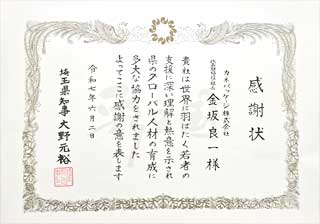 感謝状
カネパッケージ株式会社
代表取締役社長
金坂良一様
貴社は世界に羽ばたく若者の
支援に深い理解と熱意を示され
県のグローバル人材の育成に
多大な協力をされました
よってここに感謝の意を表します
令和七年六月二日
埼玉県知事 大野元裕